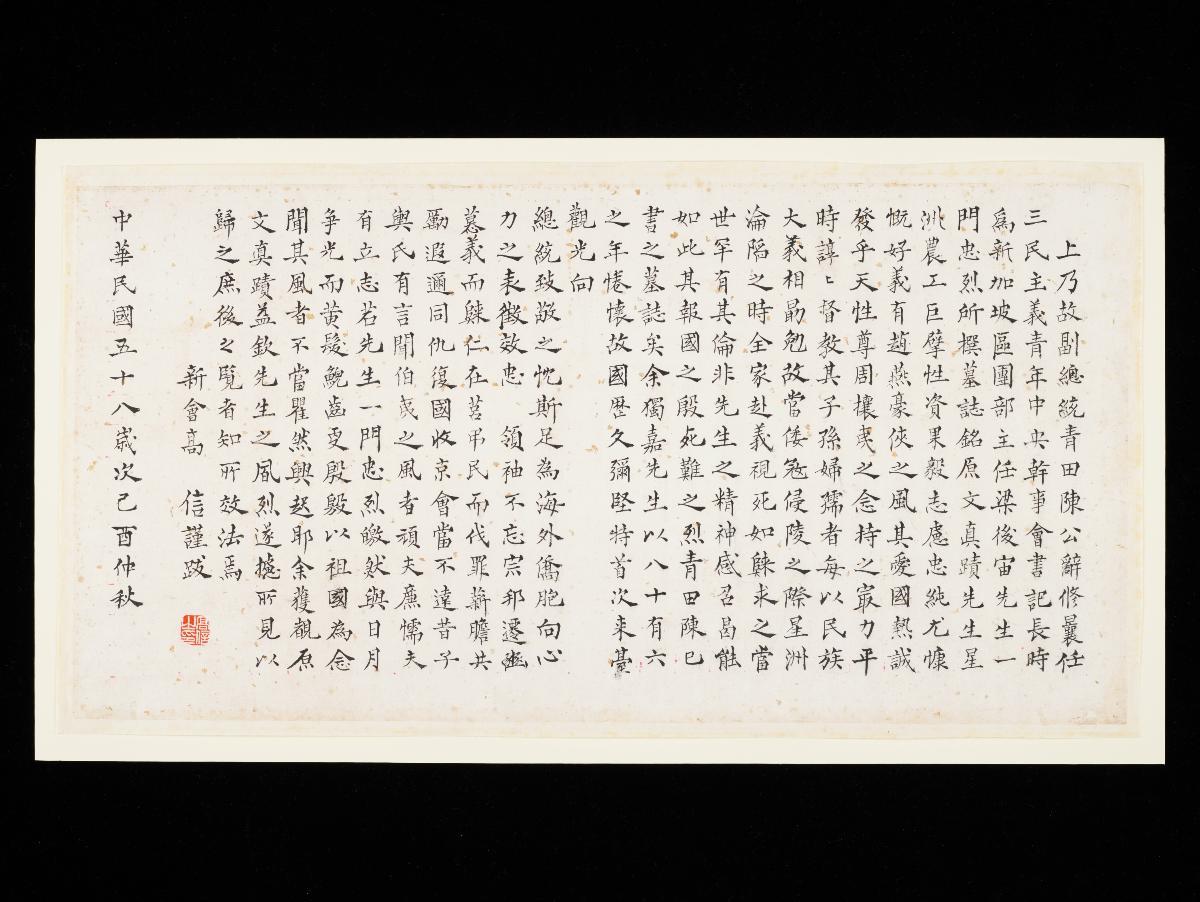 上乃故副總統青田陳公辭修曩任
三民主義青年中央幹事會書記長時
為新加坡區團部主任梁後宙先生一
門忠烈所撰墓誌銘原文真蹟先生星
洲農工巨擘性資果毅志慮忠純尤慷
慨好義有趙燕豪俠之風其愛國熱誠
發乎天性尊周攘夷之念持之寂力平
時諄〻督教其子孫婦孺者每以民族
大義相勗勉故當倭寇侵陵之際星洲
淪陷之時全家赴義視死如歸求之當
世罕有其倫非先生之精神感召曷能
如此其報國之殷死難之烈青田陳巳
書之墓誌矣余獨嘉先生以八十有六
之年惓懷故國歷久彌堅特首次來臺
觀光向
總統致敬之忱斯足為海外僑胞向心
力之表徵效忠 領袖不忘宗邦遷豳
慕義而歸仁在莒弔民而伐罪薪膽共
勵遐邇同仇復國收京會當不遠昔子
輿氏有言聞伯夷之風者頑夫廉懦夫
有立志若先生一門忠烈皦然與日月
爭光而黃髮鯢齒更殷殷以祖國為念
聞其風者不當瞿然興起耶余獲觀原
文真蹟益欽先生之風烈遂摭所見以
歸之庶後之覽者知所效法焉
新會高 信謹跋
中華民國五十八歲次己酉仲秋